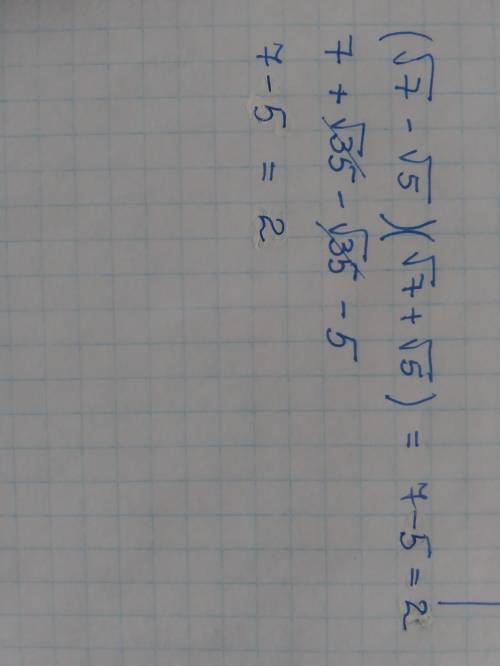 (√7 - √5)(√7 + √5) = 7 - 5 = 2
7 + √35 - √35 - 5
7 - 5 = 2